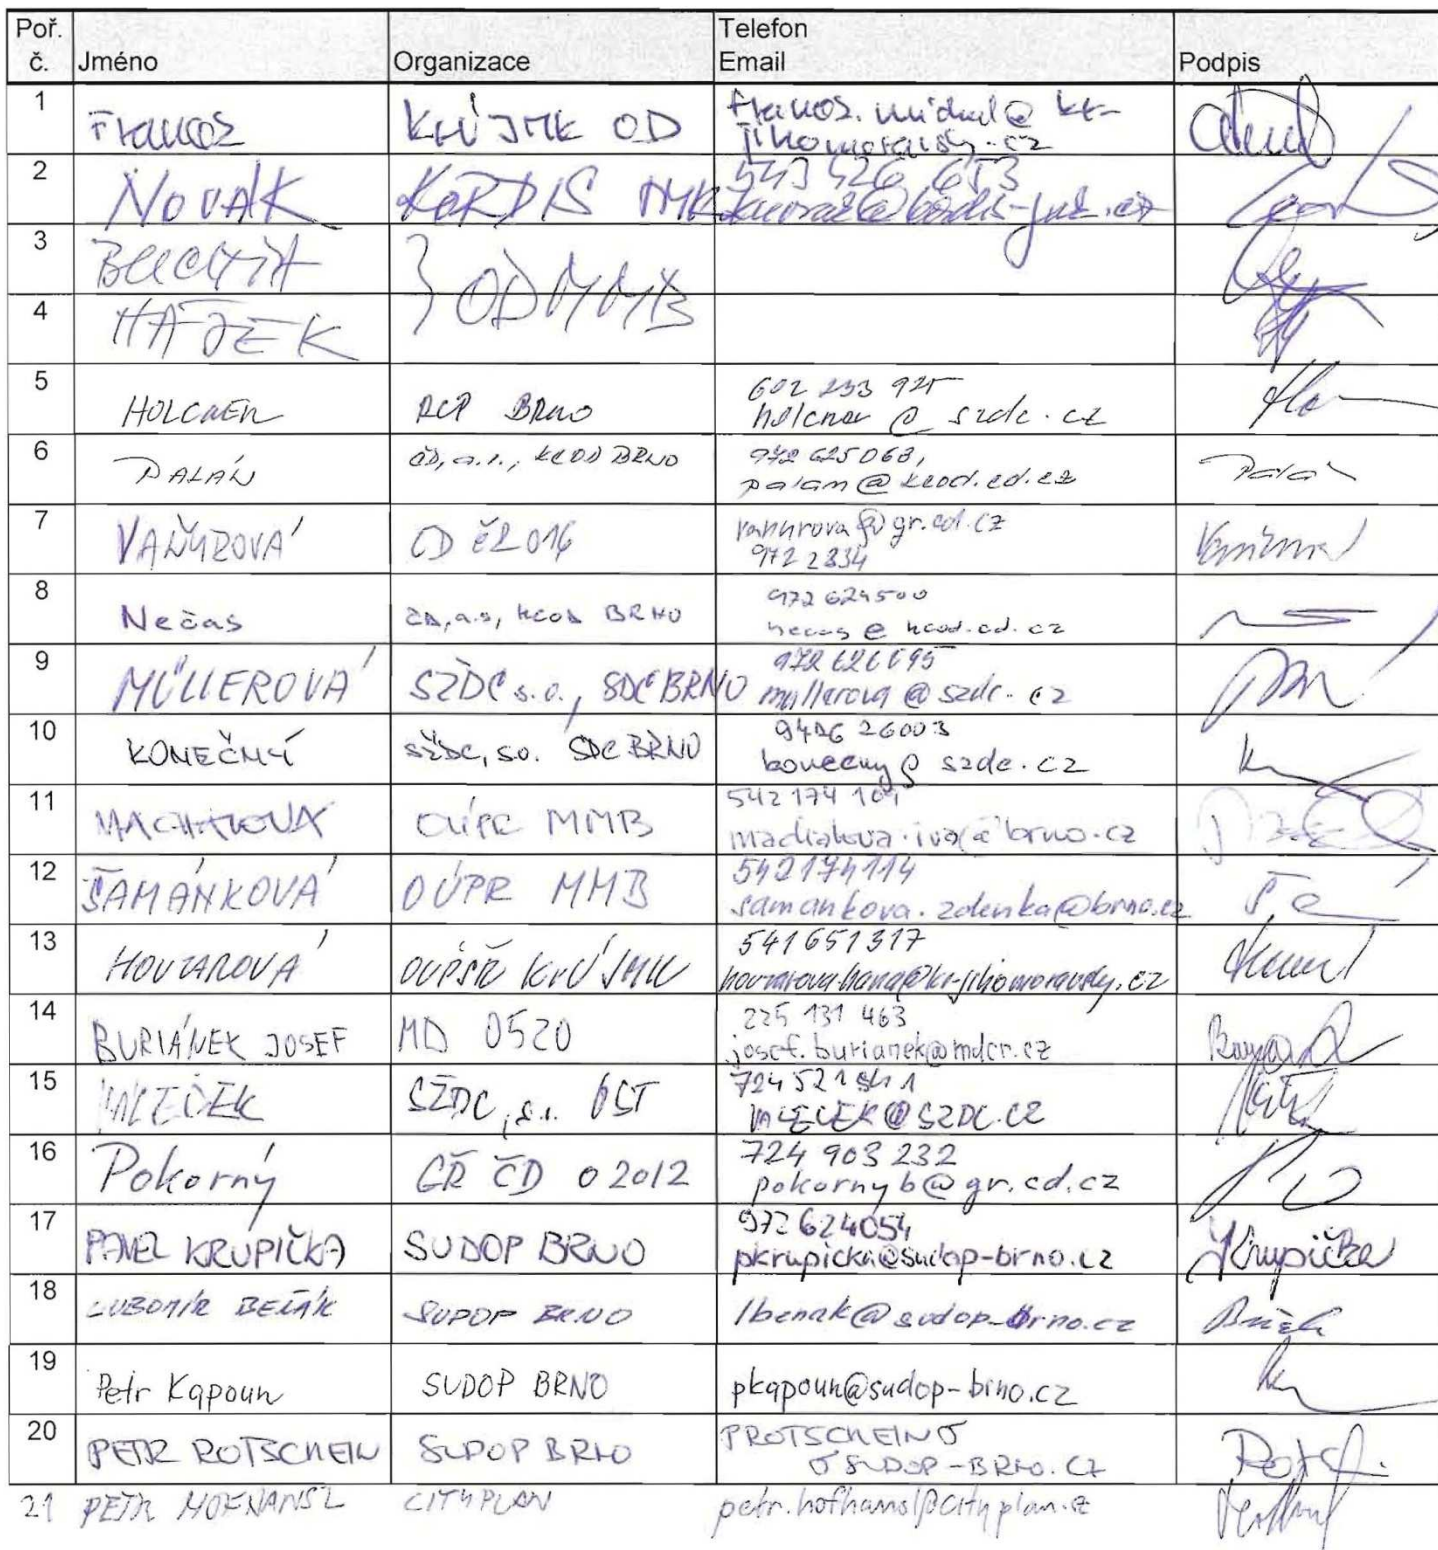 Poř. č. Jméno Organizace Telefon Email Podpis
1 Franos KrÚ JMK OD franos.michal@kr-
jihomoravsky.cz
2 NOVÁK KORDIS JMK 543 426 653
3
4 HÁJEK } OD MMB
5 HOLCNER RCP BRNO 602 293 925
holcner @ szdc.cz
6 PALÁN ČD, a.s., KCOD BRNO 972 625 068,
palan@kcod.cd.cz
7 VAŇUROVÁ vanurova@gr.cd.cz
972 2334
8 Nečas ČD, a.s, KCOD BRNO 972 624500
necas @ kcod.cd.cz
9 MÜLLEROVÁ SŽDC s.o., SDC BRNO 972 626695
mullerova @ szdc.cz
10 KONEČNÝ SŽDC, s.o. SDC BRNO
konecny @ szdc.cz
11 MACHALOVÁ OÚPR MMB 542 174 104,
machalova.iva@brno.cz
12 ŠAMÁNKOVÁ OÚPR MMB 542174114
samankova.zdenka@brno.cz
13 HOUZAROVÁ OÚPSŘ KrÚ JMK 541651317
houzarova.hana@kr-jihomoravsky.cz
14 BURIÁNEK JOSEF MD 0520 225 131 463
josef.burianek@mdcr.cz
15 SŽDC, s.o.
16 Pokorný GŘ ČD O 2012 724 903 232
pokornyb@gr.cd.cz
17 PAVEL KRUPIČKA SUDOP BRNO 972 624054
pkrupicka@sudop-brno.cz Krupička
18 LUBOMÍR BEŇÁK SUDOP BRNO lbenak@sudop-brno.cz
19 Petr Kapoun SUDOP BRNO pkapoun@sudop-brno.cz
20 PETR ROTSCHEIN SUDOP BRNO PROTSCHEIN@
SUDOP-BRNO.CZ
21 PETR HOFHANSL CITYPLAN petr.hofhansl@cityplan.cz